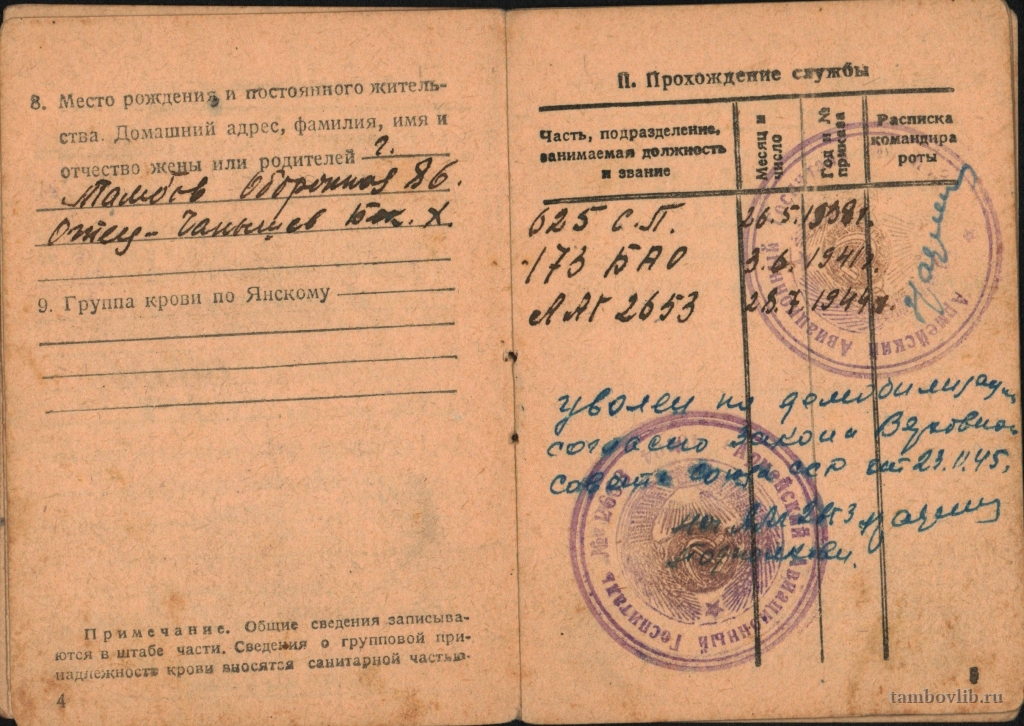 8. Место рождения и постоянного житель-
ства. Домашний адрес, фамилия, имя и
отчество жены или родителей г.
Тамбов Оборонная 86.
Отец - Чанышев Бек. Х.
9. Группа крови по Янскому
Примечание. Общие сведения записыва-
ются в штабе части. Сведения о групповой при-
надлежности крови вносятся санитарной частью.
4
II. Прохождение службы
Часть, подразделение, занимаемая должность и звание
Месяц и число
Год и № приказа
Расписка командира роты
625 С.П. 26.5. 1939г.
173 БАО 3.6. 1941г.
ААГ 2653 28.7 1944г.
Армейский Авиационный
уволен по демобилизации
согласно закона Верховного
совета союза ССР от 23.11.45.
ААГ 2653
Армейский Авиационный Госпиталь № 2653
5
tambovlib.ru